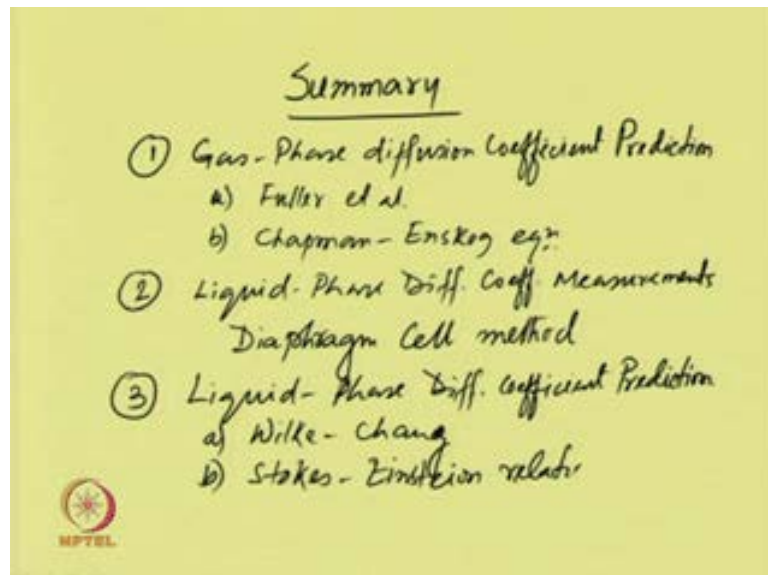 Summary
① Gas-Phase diffusion Coefficient Prediction
a) Fuller et al.
b) Chapman-Enskog eqn.
② Liquid-Phase Diff. Coeff. Measurements
Diaphragm Cell method
③ Liquid-Phase Diff. Coefficient Prediction
a) Wilke-Chang
b) Stokes-Einsteion relati
NPTEL